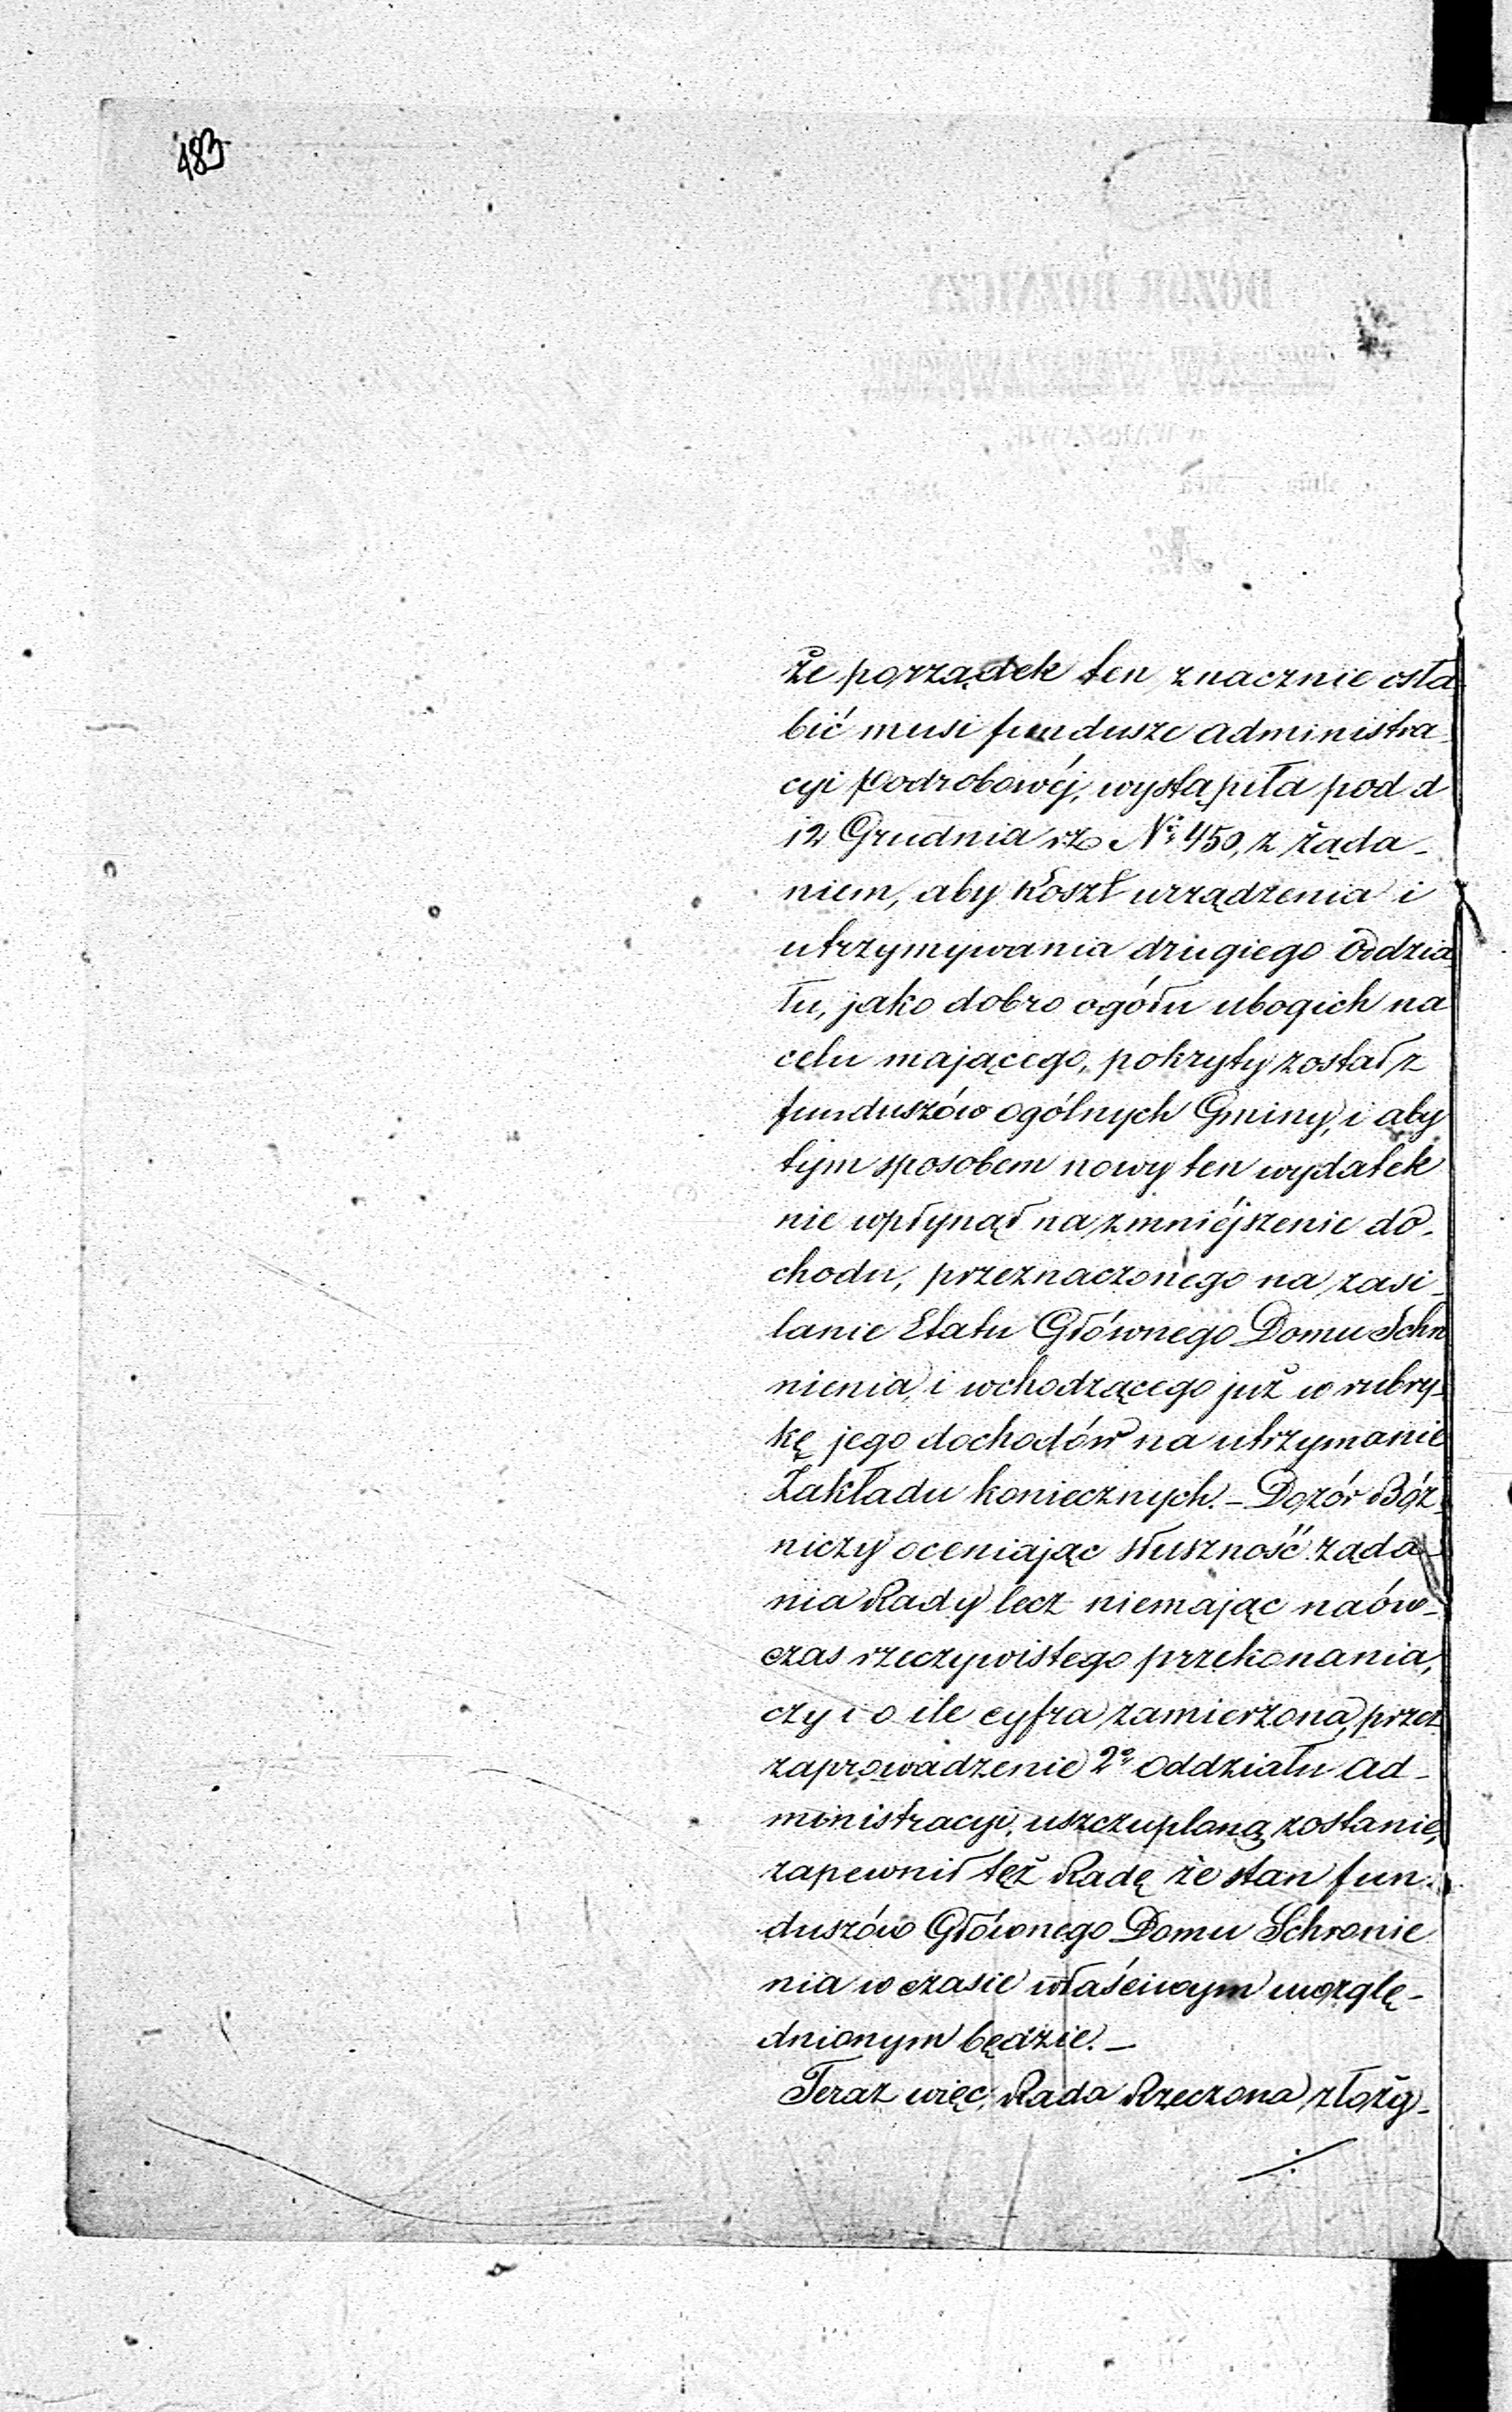 483
Że porządek ten znacznie osła
bić musi fundusze administra-
cyi Podrobowéj, wystąpiła pod d
12 Grudnia rb № 450, z żąda-
niem, aby koszt urządzenia i
utrzymywania drugiego Oddzia
łu, jako dobro ogółu ubogich na
celu mającego, pokryty został z
funduszów ogólnych Gminy, i aby
tym sposobem nowy ten wydatek
nie wpłynął na zmniéjszenie do-
chodu, przeznaczonego na zasi-
lanie Etatu Głównego Domu Schro
nienia, i wchodzącego już w rubry-
kę jego dochodów na utrzymanie
Zakładu koniecznych. – Dozór Bóż-
niczy oceniając słuszność żąda-
nia Rady lecz niemając naów-
czas rzeczywistego przekonania,
czy i o ile cyfra zamierzona, przez
zaprowadzenie 2º Oddziału Ad-
ministracyi, uszczuploną zostanie,
zapewnił też Radę że stan fun-
duszów Głównego Domu Schronie
nia w czasie właściwym uwzglę-
dnionym będzie. –
Teraz więc, Rada Rzeczona złoży-